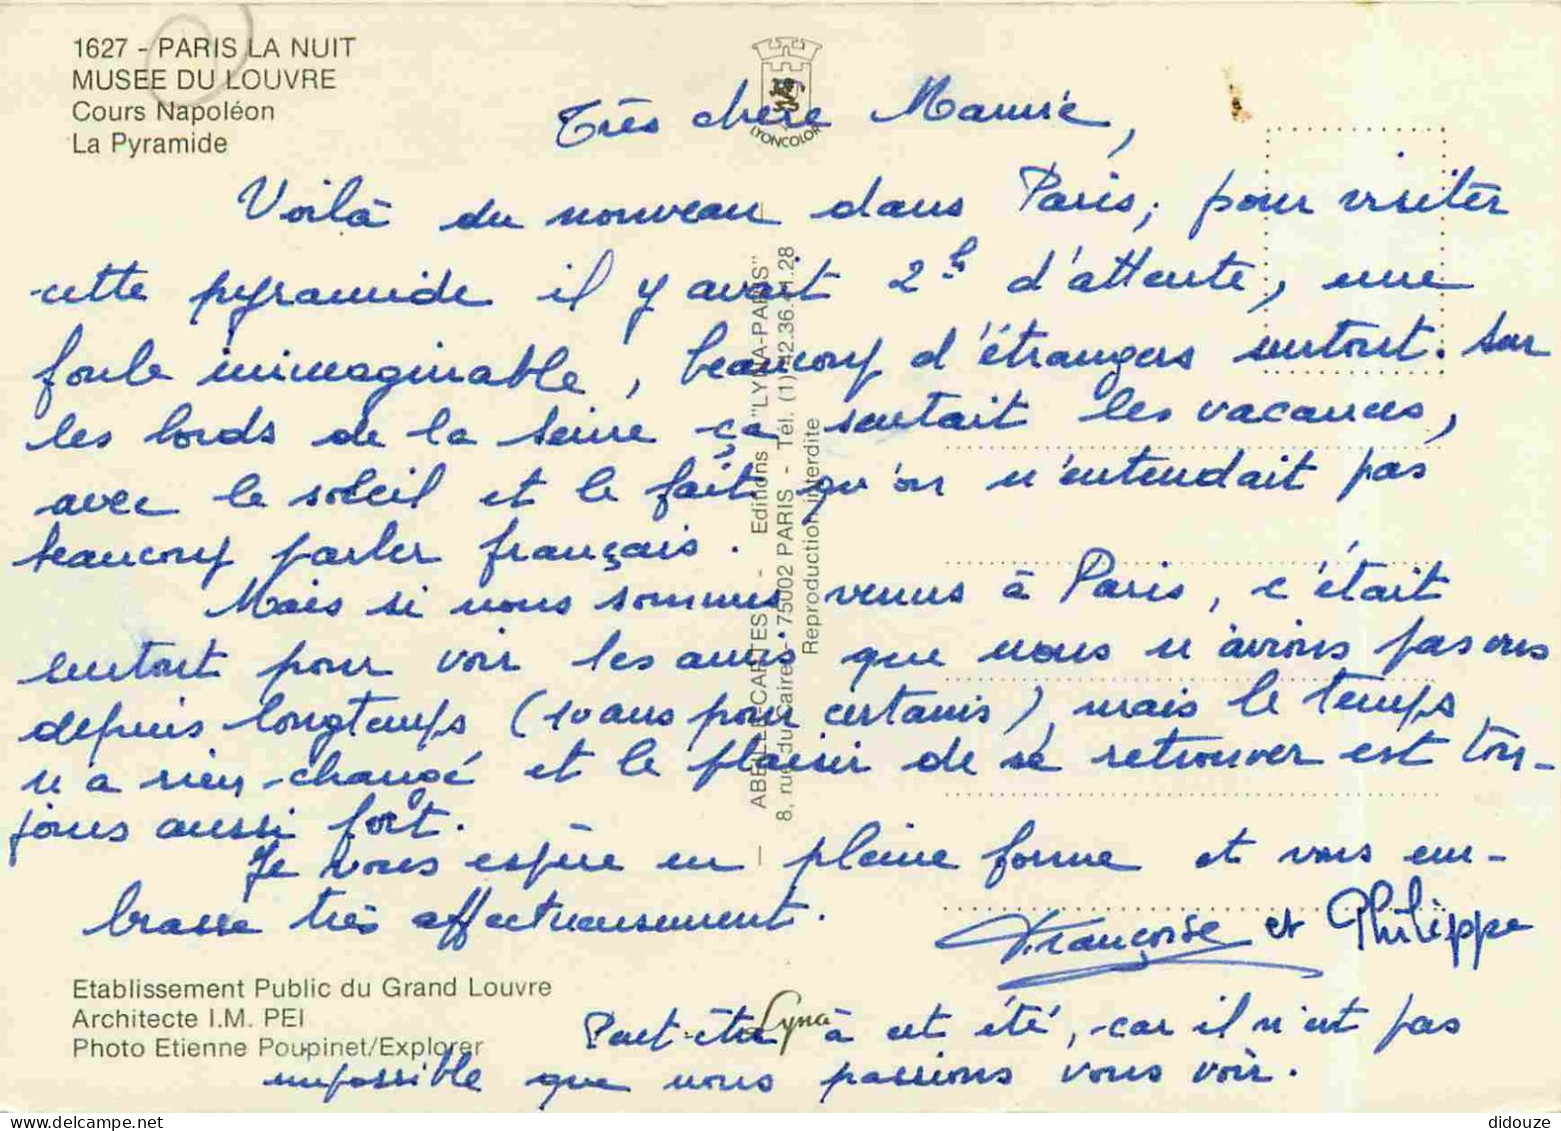 1627 - PARIS LA NUIT
MUSEE DU LOUVRE
Cours Napoléon
La Pyramide
LYONCOLOR
Très chère Mamie,
Voilà du nouveau dans Paris, pour visiter
cette pyramide il y avait 2h d'attente, une
foule inimaginable, beaucoup d'étrangers surtout. Sur
les bords de la Seine ça sentait les vacances,
avec le soleil et le fait qu'on n'entendait pas
beaucoup parler français.
Mais si nous sommes venus à Paris, c'était
surtout pour voir les amis que nous n'avions pas vus
depuis longtemps (10 ans pour certains), mais le temps
n'a rien changé et le plaisir de se retrouver est tou-
jours aussi fort.
Je vous espère en pleine forme et vous em-
brasse très affectueusement.
Françoise et Philippe
Peut-être à cet été, car il n'est pas
impossible que nous passions vous voir.
Etablissement Public du Grand Louvre
Architecte I.M. PEI
Photo Etienne Poupinet/Explorer
Lyna
8, rue du Caire - 75002 PARIS - Tél. (1) 42.36.
Reproduction interdite
didouze